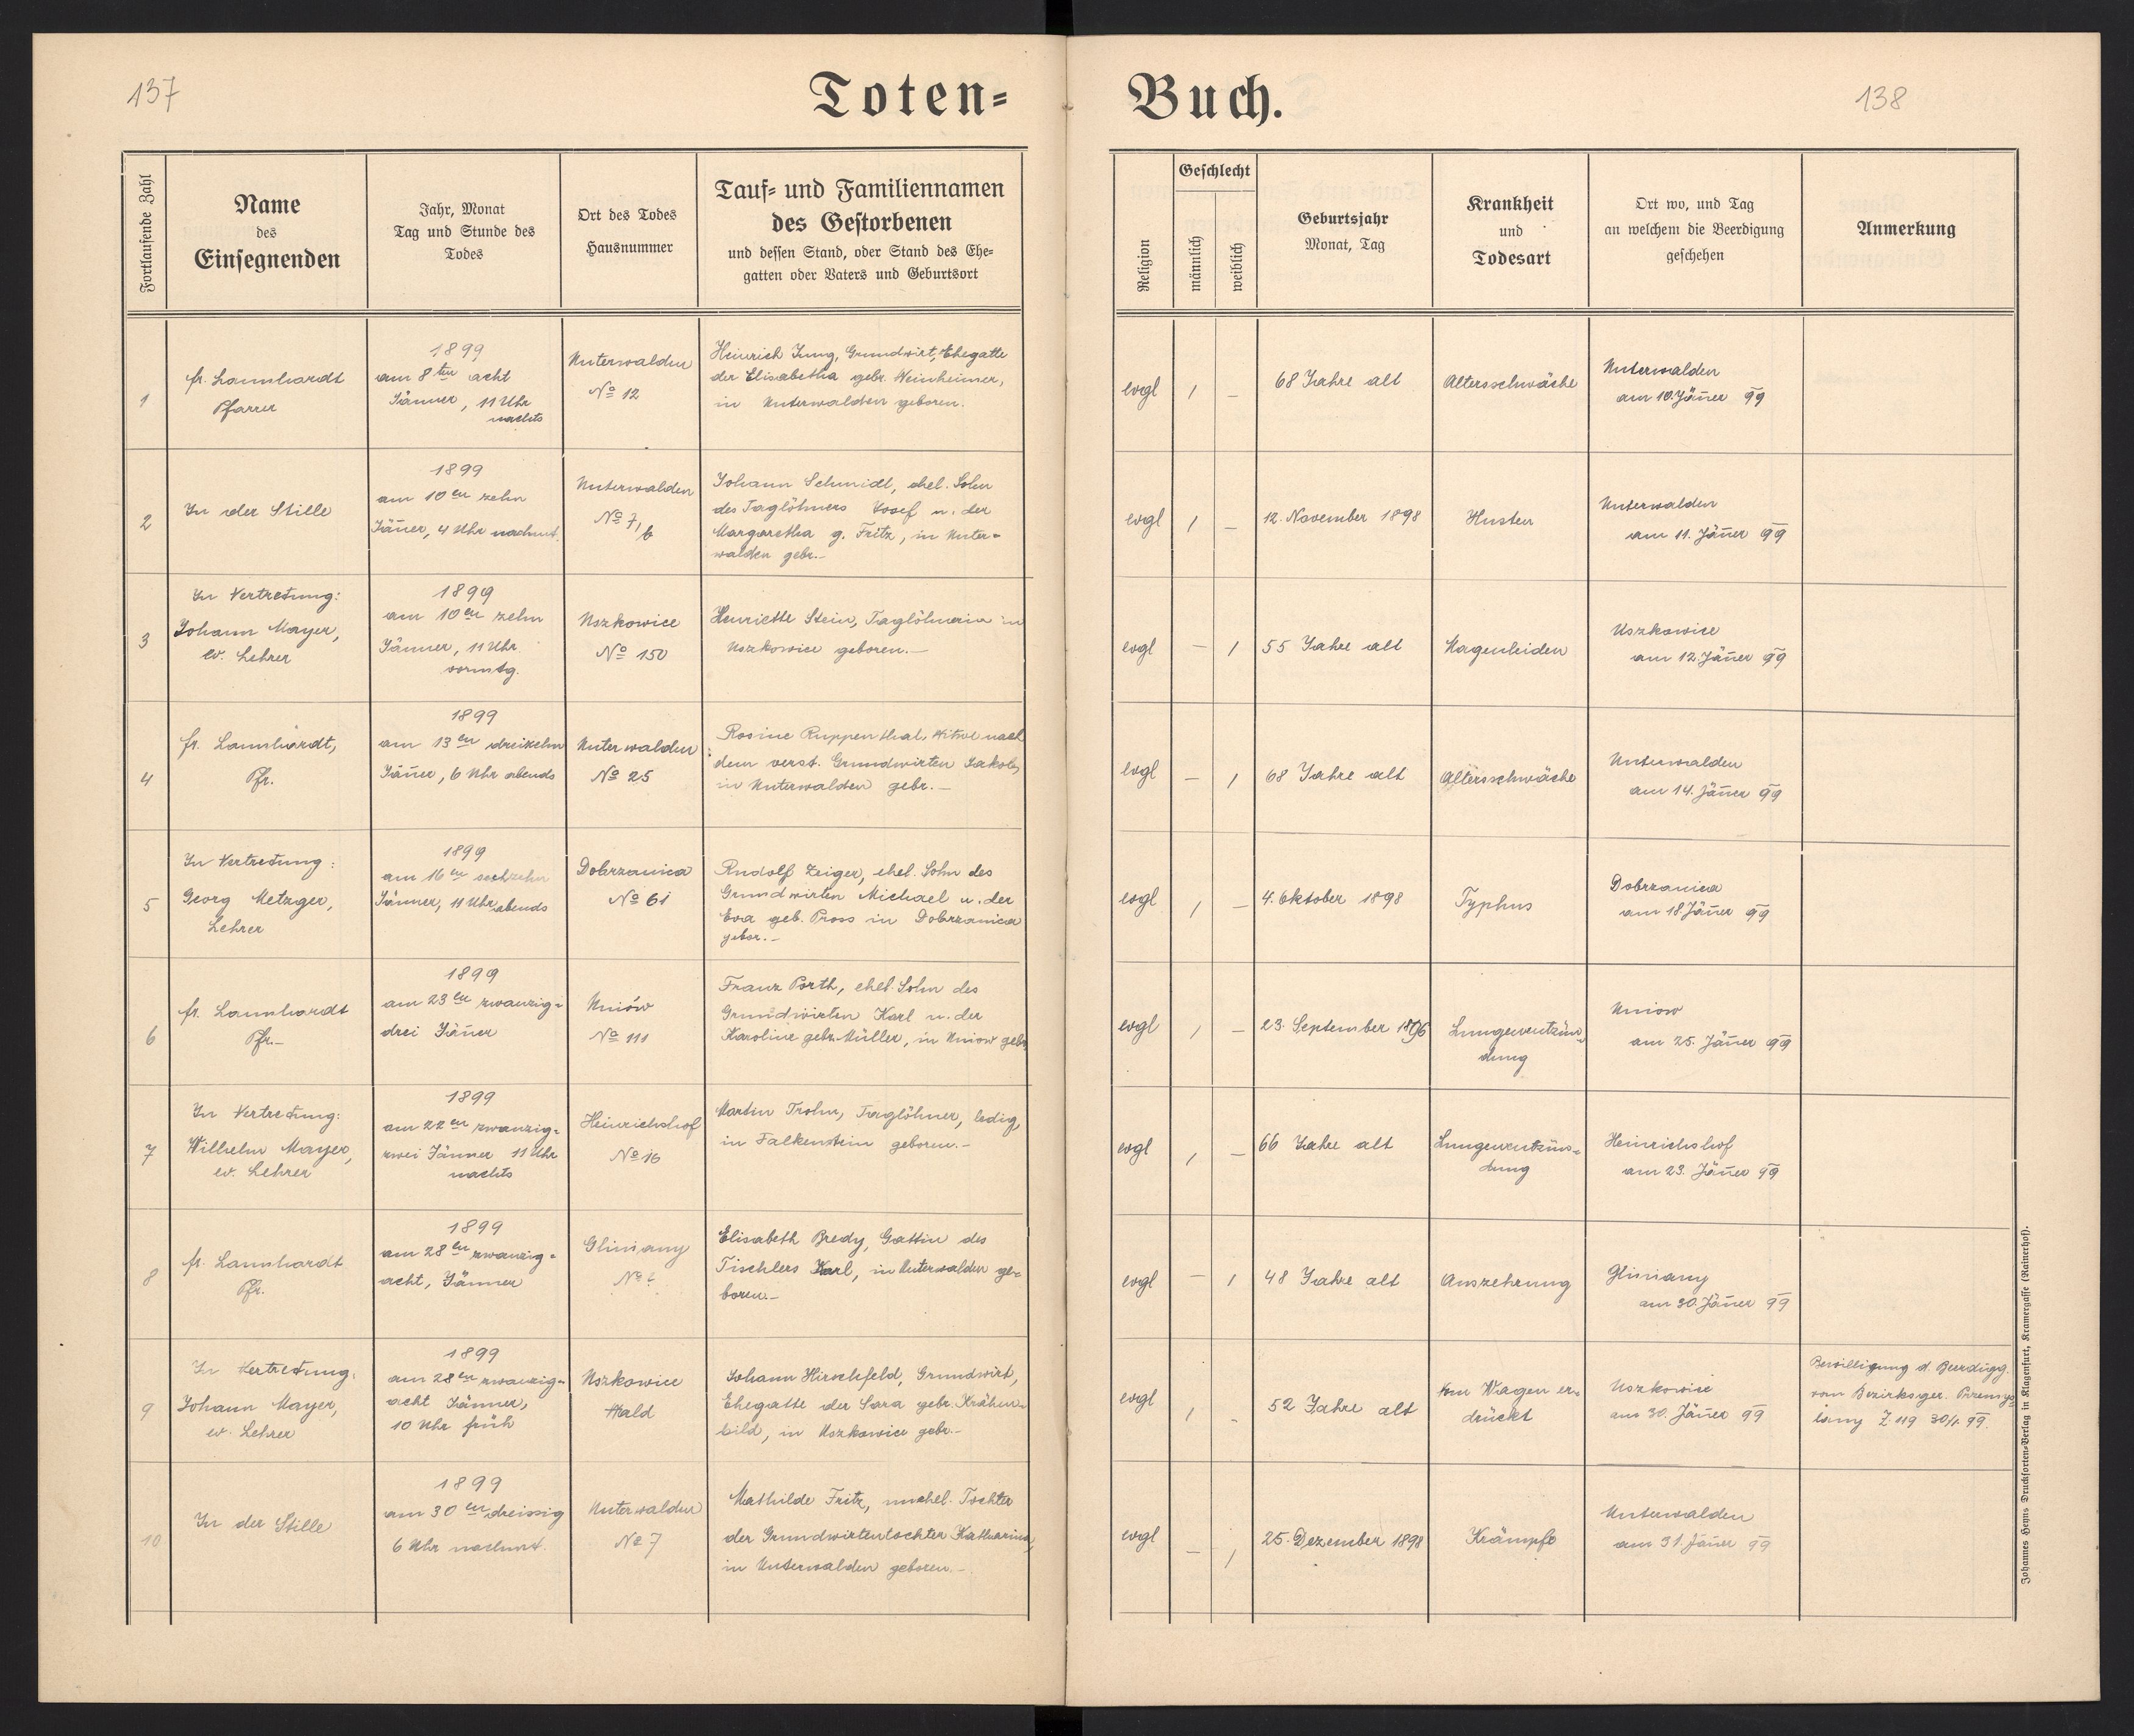 137
Toten-
Buch.
138
Fortlaufende Zahl
Name
des
Einsegnenden
Jahr, Monat
Tag und Stunde des
Todes
Ort des Todes
Hausnummer
Tauf- und Familiennamen
des Gestorbenen
und dessen Stand, oder Stand des Ehe-
gatten oder Vaters und Geburtsort
Religion
Geschlecht
männlich
weiblich
Geburtsjahr
Monat, Tag
Krankheit
und
Todesart
Ort wo, und Tag
an welchem die Beerdigung
geschehen
Anmerkung
1
fr. Lannhardt
Pfarrer
1899
am 8ten acht
Jänner, 11 Uhr
nachts
Unterwalden
No 12
Heinrich Jung, Grundwirt, Ehegatte
der Elisabetha gebr. Weinheimer,
in Unterwalden geboren.
evgl
1
–
68 Jahre alt
Altersschwäche
Unterwalden
am 10. Jänner 99
2
In der Stille
1899
am 10en zehn
Jäner, 4 Uhr nachmt.
Unterwalden
No 7/b
Johann Schmidt, ehel. Sohn
des Taglöhners Josef u. der
Margaretha g. Fritz, in Unter-
walden gebr.–
evgl
1
–
12. November 1898
Husten
Unterwalden
am 11. Jäner 99
3
In Vertretung:
Johann Mayer,
ev. Lehrer
1899
am 10en zehn
Jänner, 11 Uhr
vormtg.
Uszkowice
No 150
Henriette Stein, Taglöhnerin in
Uszkowice geboren.–
evgl
–
1
55 Jahre alt
Magenleiden
Uszkowice
am 12. Jäner 99
4
fr. Lannhardt,
Pfr.
1899
am 13en dreizehn
Jäner, 6 Uhr abends
Unterwalden
No 25
Rosine Ruppenthal, Witwe nach
dem verst. Grundwirten Jakob,
in Unterwalden gebr.–
evgl
–
1
68 Jahre alt
Altersschwäche
Unterwalden
am 14. Jäner 99
5
In Vertretung:
Georg Metzger,
Lehrer
1899
am 16en sechzehn
Jänner, 11 Uhr abends
Dobrzanica
No 61
Rudolf Zeiger, ehel. Sohn des
Grundwirten Michael u. der
Eva geb. Pross in Dobrzanica
gebor.–
evgl
1
–
4. Oktober 1898
Typhus
Dobrzanica
am 18. Jäner 99
6
fr. Lannhardt
Pfr.–
1899
am 23en zwanzig-
drei Jäner
Uniów
No 111
Franz Porth, ehel. Sohn des
Grundwirten Karl u. der
Karoline gebr. Müller, in Uniow gebr.
evgl
1
–
23. September 1896
Lungenentzün-
dung
Uniow
am 25. Jäner 99
7
In Vertretung:
Wilhelm Mayer,
ev. Lehrer
1899
am 22en zwanzig-
zwei Jänner 11 Uhr
nachts
Heinrichshof
No 16
Martin Trohn, Taglöhner, ledig,
in Falkenstein geboren.–
evgl
1
–
66 Jahre alt
Lungenentzün-
dung
Heinrichshof
am 23. Jäner 99
8
fr. Lannhardt
Pfr.
1899
am 28en zwanzig-
acht, Jänner
Gliniany
No ?
Elisabeth Bredy, Gattin des
Tischlers Karl, in Unterwalden ge-
boren.–
evgl
–
1
48 Jahre alt
Auszehrung
Gliniany
am 30. Jäner 99
9
In Vertretung:
Johann Mayer,
ev. Lehrer
1899
am 28en zwanzig-
acht Jänner,
10 Uhr früh
Uszkowice
Wald
Johann Hirschfeld, Grundwirt,
Ehegatte der Sara gebr. Krähen-
bild, in Uszkowice gebr.–
evgl
1
–
52 Jahre alt
Vom Wagen er-
drückt
Uszkowice
am 30. Jäner 99
Bewilligung d. Beerdigg.
vom Bezirksger. Przemys-
lany Z 119 30/1 99.
10
In der Stille
1899
am 30en dreissig
6 Uhr nachmt.
Unterwalden
No 7
Mathilde Fritz, unehel. Tochter
der Grundwirtentochter Katharina,
in Unterwalden geboren.–
evgl
–
1
25. Dezember 1898
Krämpfe
Unterwalden
am 31. Jäner 99
Johannes Heyns Drucksorten-Verlag in Klagenfurt, Kramergasse (Rainerhof).